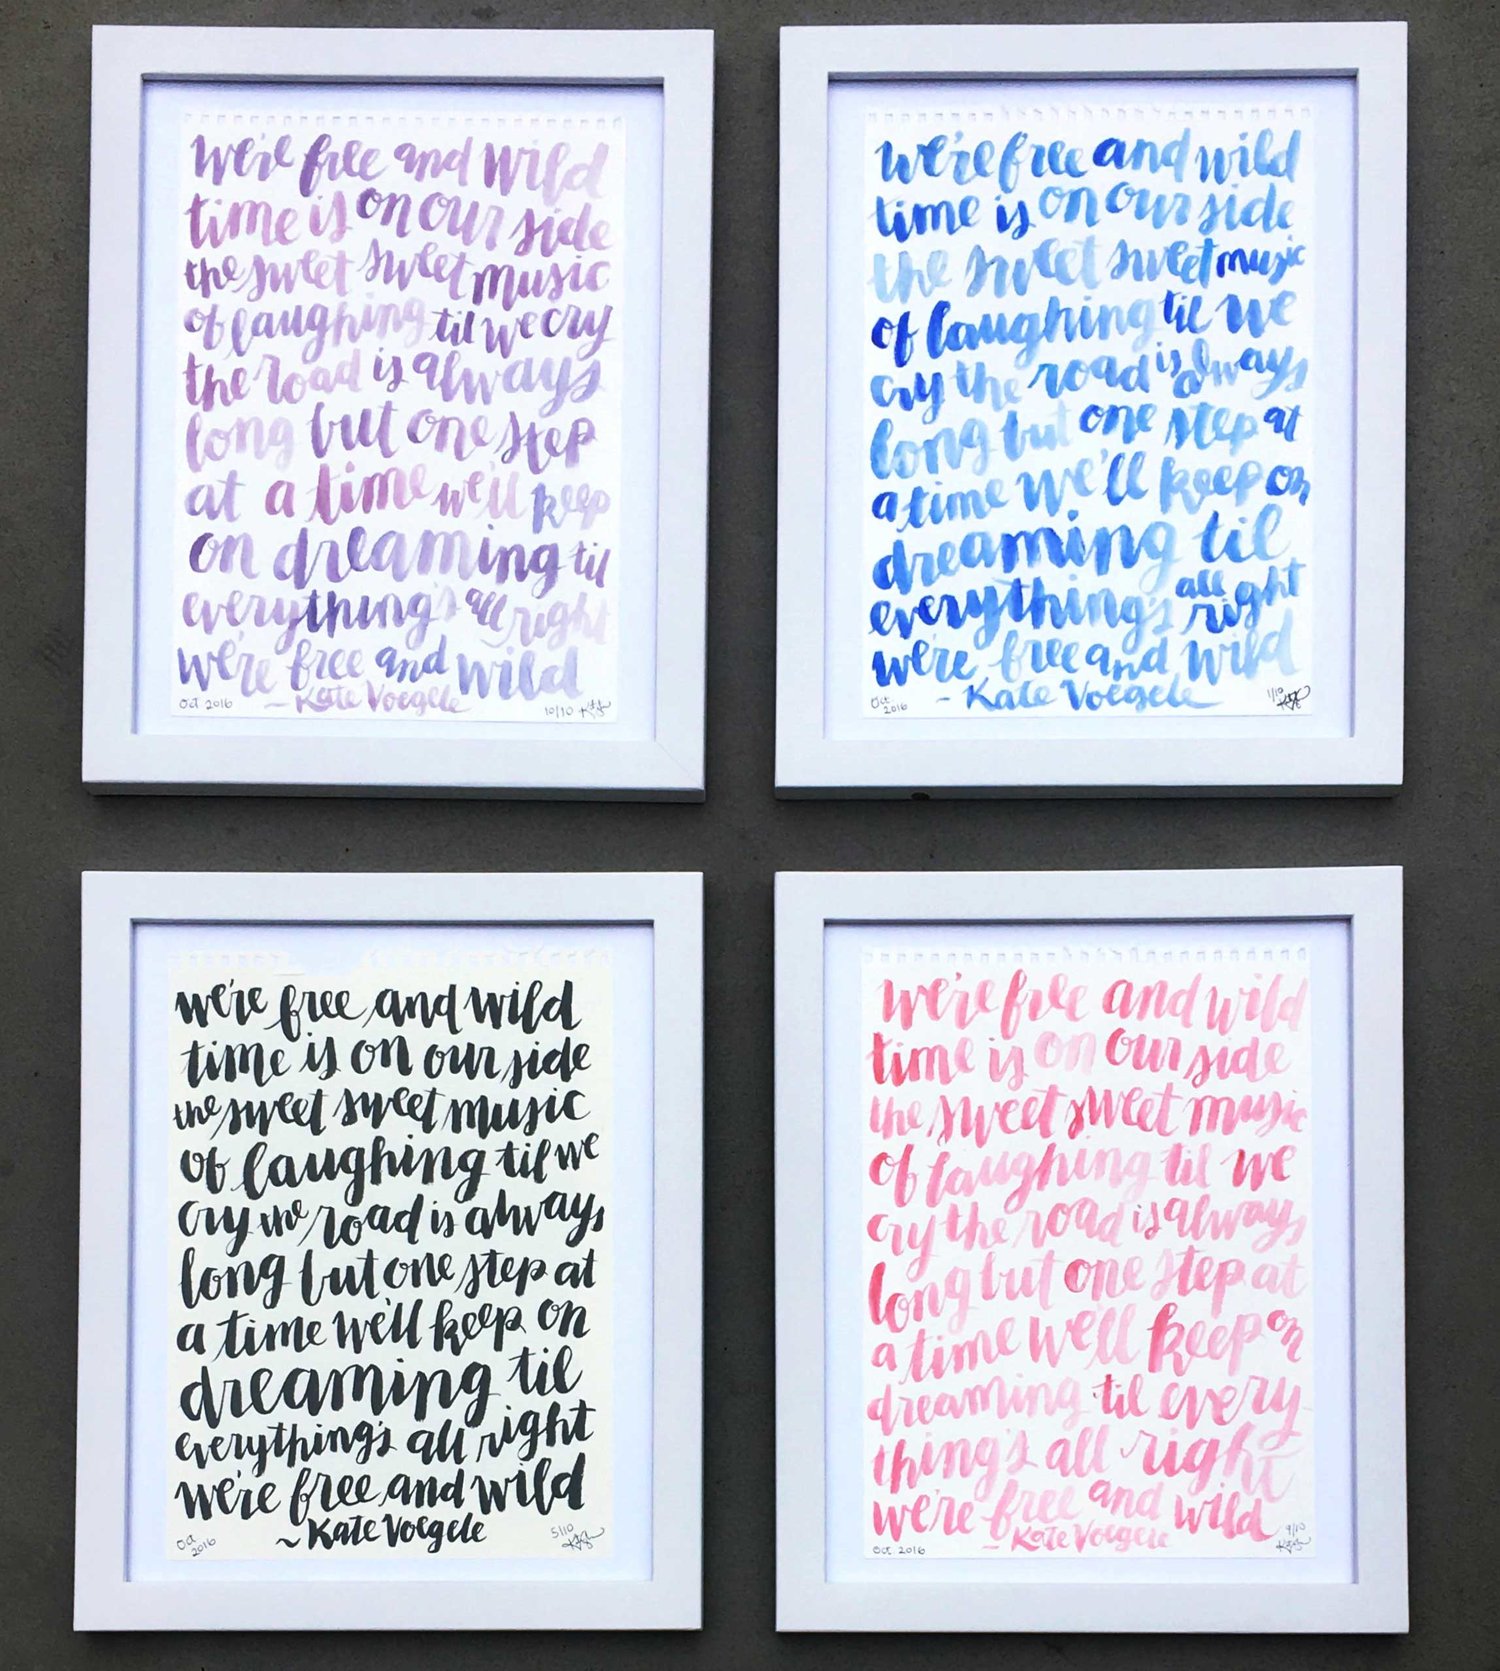 we're free and wild
time is on our side
the sweet sweet music
of laughing til we cry
the road is always
long but one step
at a time we'll keep
on dreaming til
everything's all right
we're free and wild
~ Kate Voegele
Oct 2016
10/10
we're free and wild
time is on our side
the sweet sweet music
of laughing til we
cry the road is always
long but one step at
a time we'll keep on
dreaming til
everything's all right
we're free and wild
~ Kate Voegele
Oct
2016
1/10
we're free and wild
time is on our side
the sweet sweet music
of laughing til we
cry the road is always
long but one step at
a time we'll keep on
dreaming til
everything's all right
we're free and wild
~ Kate Voegele
Oct
2016
5/10
we're free and wild
time is on our side
the sweet sweet music
of laughing til we
cry the road is always
long but one step at
a time we'll keep on
dreaming til every
thing's all right
we're free and wild
~ Kate Voegele
Oct. 2016
9/10